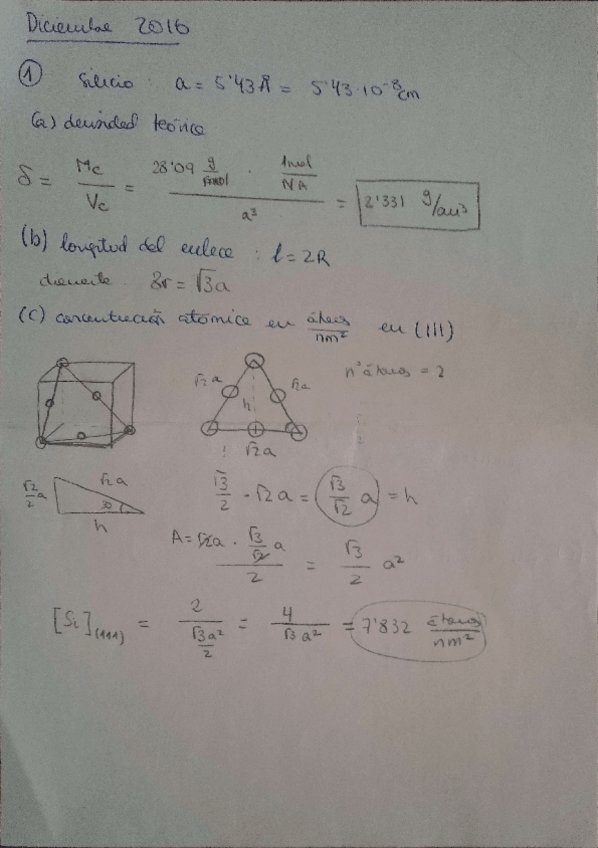 Diciembre 2016
① Silicio: a = 5'43 Å = 5'43·10⁻⁸ cm
(a) densidad teórica
δ = Mc / Vc = (28'09 g/mol · 1mol/NA) / a³ = 2'331 g/cm³
(b) longitud del enlace : l = 2R
diamante 8r = √3a
(c) concentración atómica en átomos/nm² en (111)
√2 a h √2 a nº átomos = 2
√2 a
√2/2 a √2 a 30 h
√3/2 · √2 a = √3/√2 a = h
A = (√2a · √3/√2 a) / 2 = √3/2 a²
[Si](111) = 2 / (√3a²/2) = 4 / √3 a² = 7'832 átomos/nm²